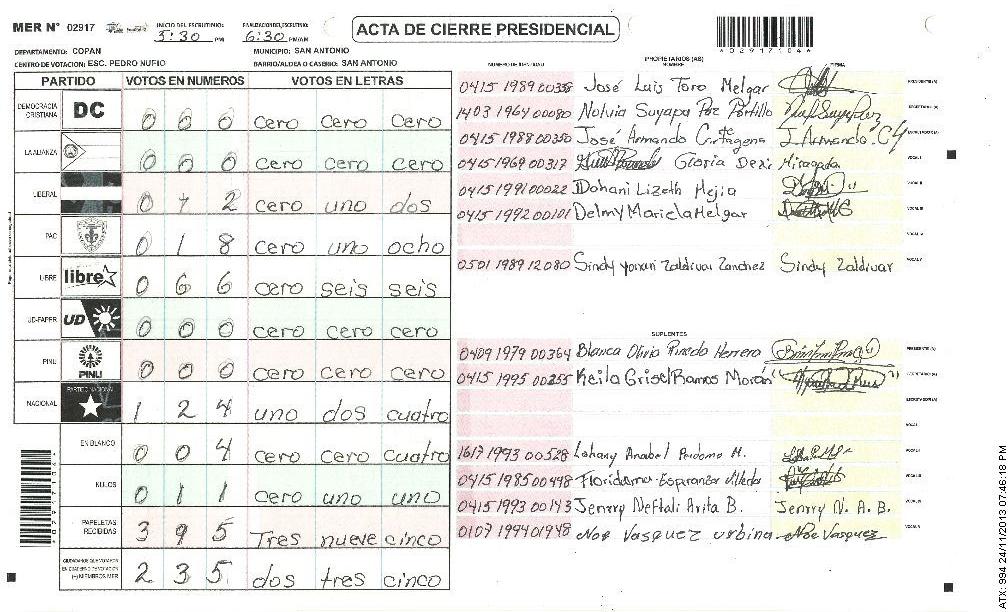 MER N° 02917
INICIO DEL ESCRUTINIO: 5:30 PM
FINALIZACION DEL ESCRUTINIO: 6:30 PM/AM
ACTA DE CIERRE PRESIDENCIAL
*029171044*
DEPARTAMENTO: COPAN MUNICIPIO: SAN ANTONIO
CENTRO DE VOTACION: ESC. PEDRO NUFIO BARRIO/ALDEA O CASERIO: SAN ANTONIO
PARTIDO VOTOS EN NUMEROS VOTOS EN LETRAS
DEMOCRACIA CRISTIANA DC 0 0 0 cero cero cero
LA ALIANZA 0 0 0 cero cero cero
LIBERAL 0 1 2 cero uno dos
PAC 0 1 8 cero uno ocho
LIBRE libre 0 6 6 cero seis seis
UD-FAPER UD 0 0 0 cero cero cero
PINU PINU 0 0 0 cero cero cero
NACIONAL PARTIDO NACIONAL 1 2 4 uno dos cuatro
EN BLANCO 0 0 4 cero cero cuatro
NULOS 0 1 1 cero uno uno
PAPELETAS RECIBIDAS 3 9 5 Tres nueve cinco
CIUDADANOS QUE VOTARON EN CUADERNO DE VOTACION (+) MIEMBROS MER 2 3 5 dos tres cinco
PROPIETARIOS (AS)
NUMERO DE IDENTIDAD NOMBRE FIRMA
0415 1989 00358 José Luis Toro Melgar PRESIDENTE (A)
1403 1964 00080 Nolvia Suyapa Paz Portillo SECRETARIO (A)
0415 1988 00350 José Armando Cartagena J. Armando. C ESCRUTADOR (A)
0415 1969 00317 Gloria Dexi Miragada VOCAL I
0415 1991 00022 Dohani Lizeth Mejia VOCAL II
0415 1992 00101 Delmy Mariela Melgar VOCAL III
VOCAL IV
0501 1989 12080 Sindy Yorari Zaldivar Sanchez Sindy Zaldivar VOCAL V
SUPLENTES
0409 1979 00364 Blanca Olivia Pinedo Herrero PRESIDENTE (A)
0415 1995 00255 Keila Grisel Ramos Morán SECRETARIO (A)
ESCRUTADOR (A)
VOCAL I
1617 1993 00528 Lohany Anabel Perdomo M. VOCAL II
0415 1985 00498 Floridalma Esperanza VOCAL III
0415 1993 00143 Jenrry Neftali Arita B. Jenrry N. A. B. VOCAL IV
0107 1994 01948 Noe Vasquez urbina Noe Vasquez VOCAL V
ATX: 994 24/11/2013 07:46:18 PM